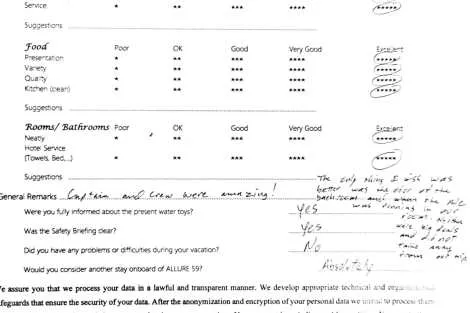 Service * ** *** **** *****
Suggestions
Food Poor OK Good Very Good Excellent
Presentation * ** *** **** *****
Variety * ** *** **** *****
Quality * ** *** **** *****
Kitchen (clean) * ** *** **** *****
Suggestions
Rooms/ Bathrooms Poor OK Good Very Good Excellent
Neatly * ** *** **** *****
Hotel Service
(Towels, Bed,...) * ** *** **** *****
Suggestions The only thing I wish was
better was the odor of the
bathroom and when the AC
was running in our
room. Neither
were big deals
and did not
take away
from our trip
General Remarks Captain and Crew were amazing!
Were you fully informed about the present water toys? Yes
Was the Safety Briefing clear? Yes
Did you have any problems or difficulties during your vacation? No
Would you consider another stay onboard of ALLURE 59? Absolutely
We assure you that we process your data in a lawful and transparent manner. We develop appropriate technical and organizational
safeguards that ensure the security of your data. After the anonymization and encryption of your personal data we intend to process them